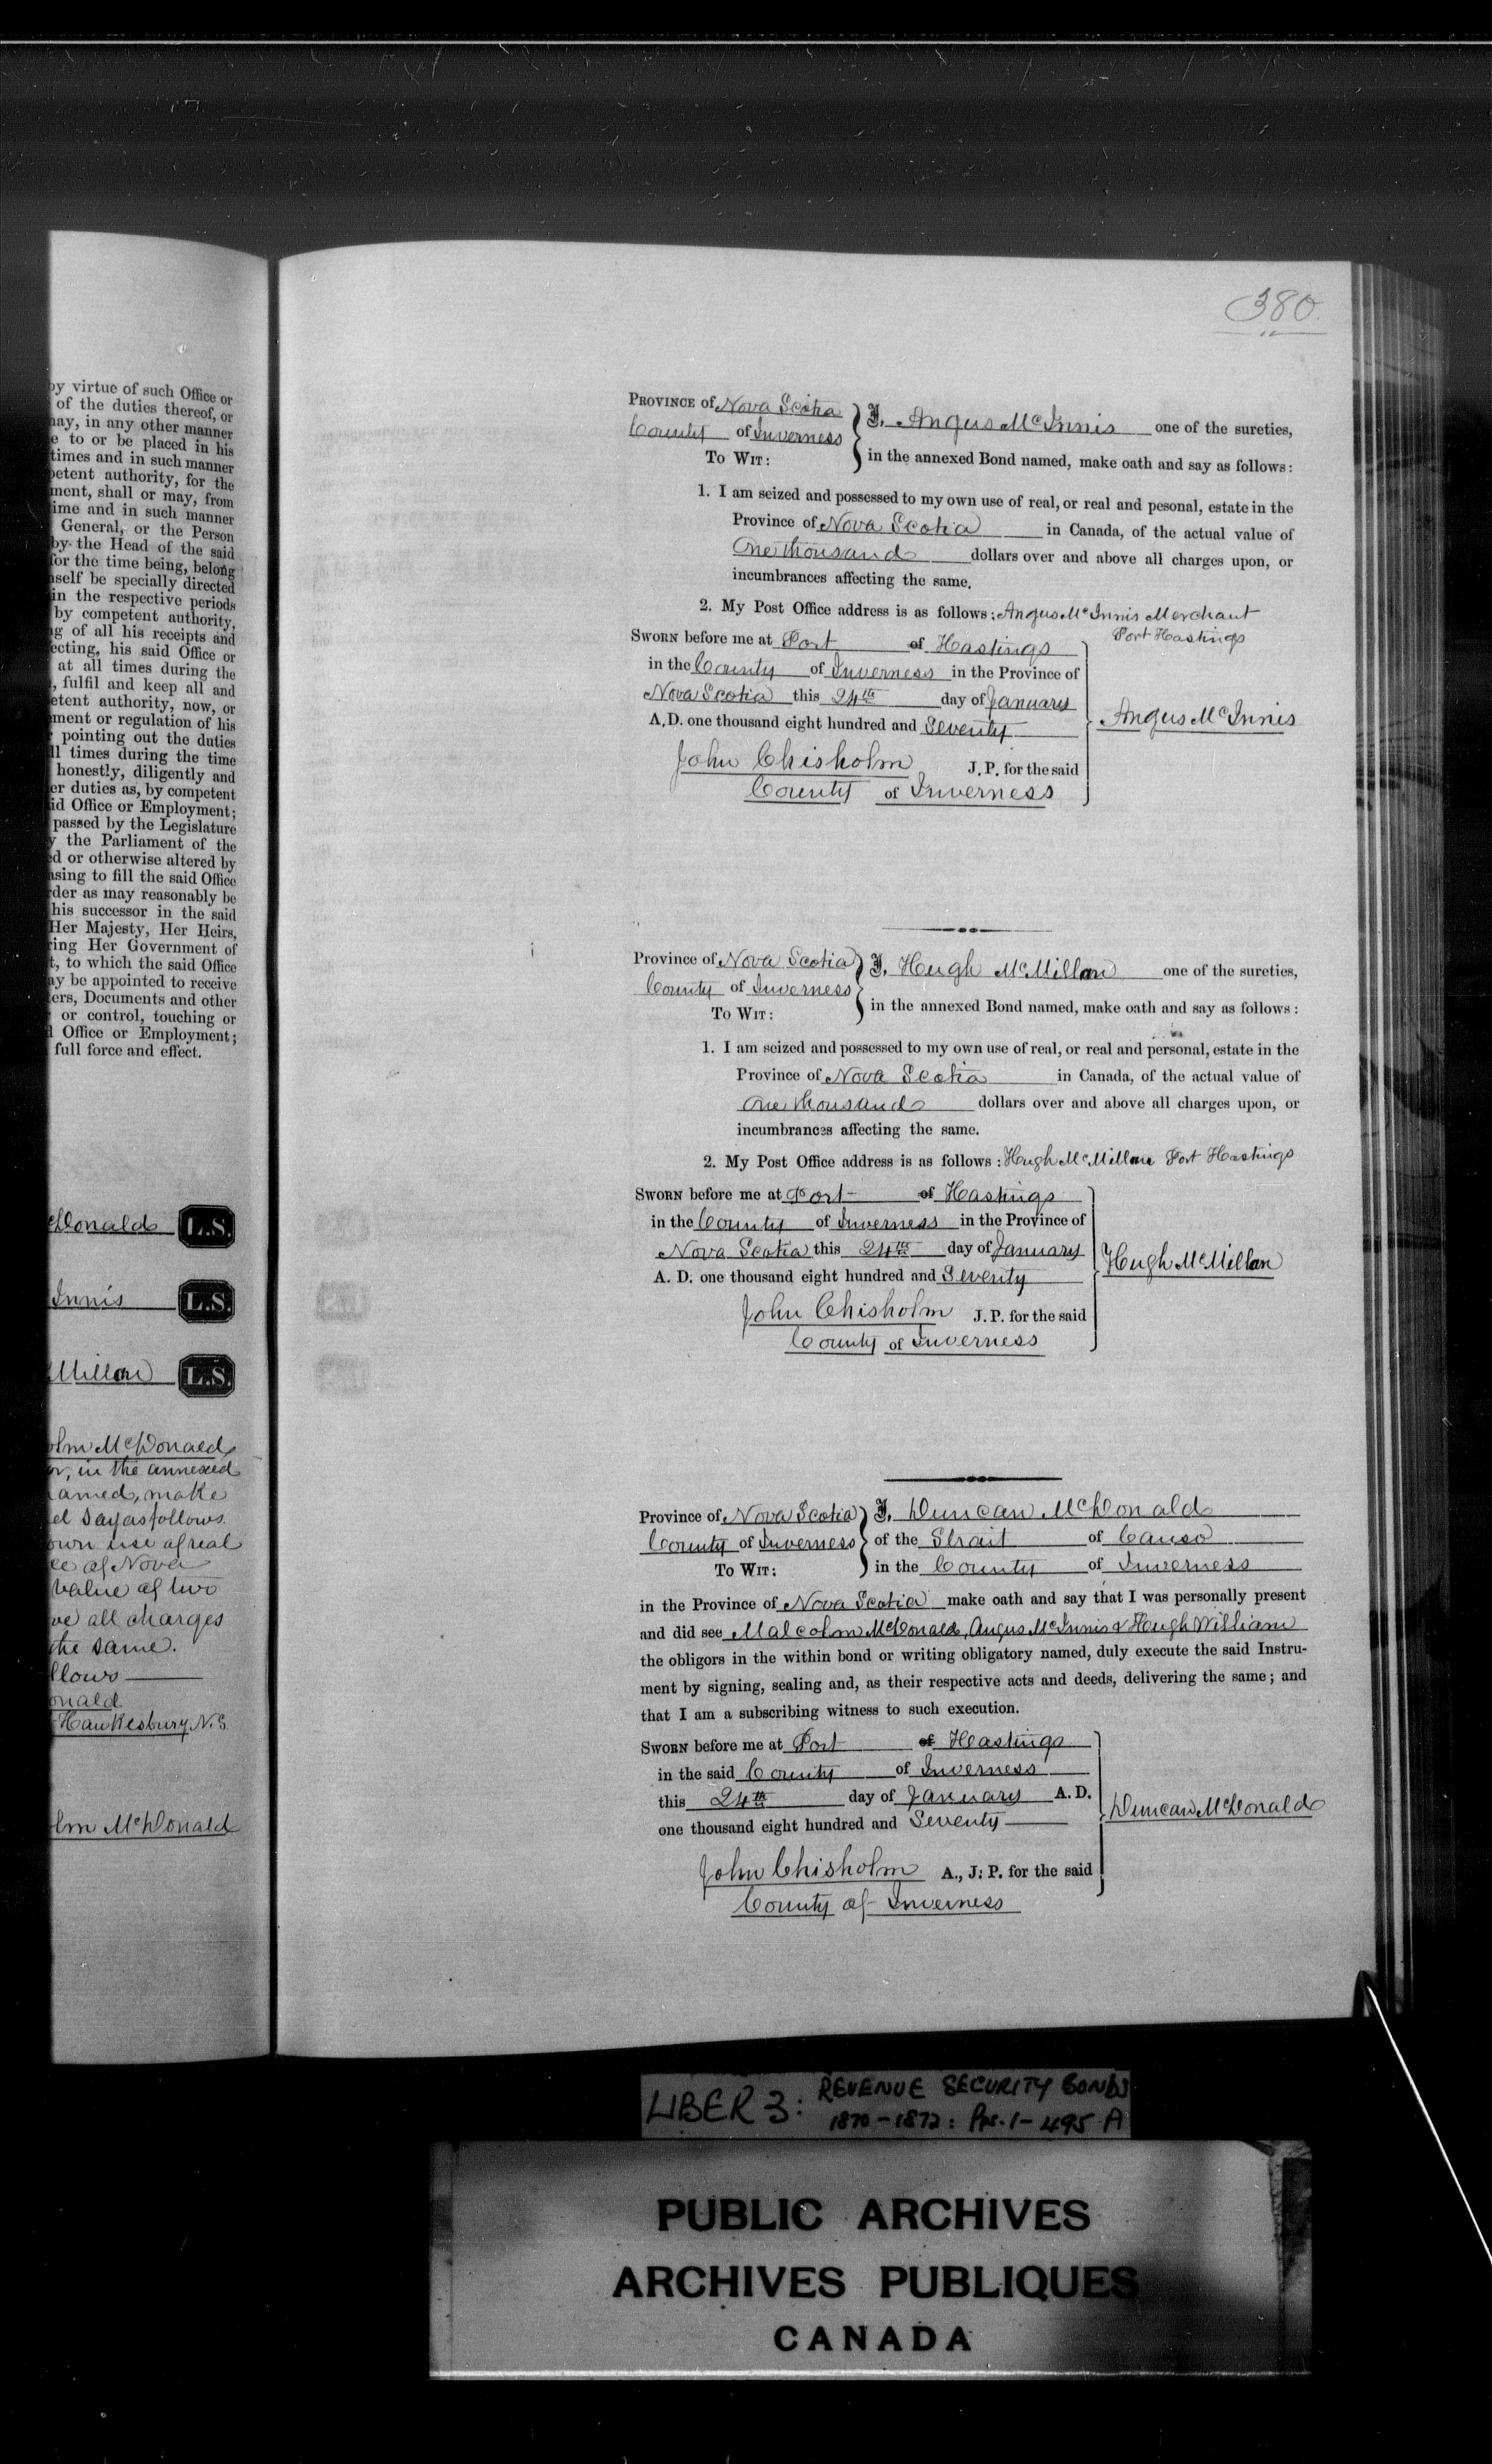 by virtue of such Office or
of the duties thereof, or
may, in any other manner
e to or be placed in his
times and in such manner
petent authority, for the
ment, shall or may, from
ime and in such manner
General, or the Person
by the Head of the said
for the time being, belong
nself be specially directed
in the respective periods
by competent authority,
ng of all his receipts and
ecting, his said Office or
at all times during the
, fulfil and keep all and
etent authority, now, or
ment or regulation of his
pointing out the duties
ll times during the time
honestly, diligently and
er duties as, by competent
id Office or Employment;
passed by the Legislature
y the Parliament of the
ed or otherwise altered by
asing to fill the said Office
rder as may reasonably be
his successor in the said
Her Majesty, Her Heirs,
ring Her Government of
t, to which the said Office
ay be appointed to receive
ers, Documents and other
or control, touching or
d Office or Employment;
full force and effect.
cDonald L.S.
Innis L.S.
Millan L.S.
olm McDonald
or, in the annexed
named, make
d Say as follows.
own use of real
ce of Nova
value of two
ve all charges
the same.
llows
onald
Hawkesbury N.S.
olm McDonald
380.
PROVINCE of Nova Scotia
County of Inverness
TO WIT:
I, Angus McInnis one of the sureties,
in the annexed Bond named, make oath and say as follows:
1. I am seized and possessed to my own use of real, or real and pesonal, estate in the
Province of Nova Scotia in Canada, of the actual value of
One thousand dollars over and above all charges upon, or
incumbrances affecting the same.
2. My Post Office address is as follows: Angus McInnis Merchant
Port Hastings
SWORN before me at Port of Hastings
in the County of Inverness in the Province of
Nova Scotia this 24th day of January
A.D. one thousand eight hundred and Seventy
Angus McInnis
John Chisholm J. P. for the said
County of Inverness
Province of Nova Scotia
County of Inverness
TO WIT:
I, Hugh McMillan one of the sureties,
in the annexed Bond named, make oath and say as follows:
1. I am seized and possessed to my own use of real, or real and personal, estate in the
Province of Nova Scotia in Canada, of the actual value of
One thousand dollars over and above all charges upon, or
incumbrances affecting the same.
2. My Post Office address is as follows: Hugh McMillan Port Hastings
SWORN before me at Port of Hastings
in the County of Inverness in the Province of
Nova Scotia this 24th day of January
A. D. one thousand eight hundred and Seventy
Hugh McMillan
John Chisholm J. P. for the said
County of Inverness
Province of Nova Scotia
County of Inverness
TO WIT:
I, Duncan McDonald
of the Strait of Canso
in the County of Inverness
in the Province of Nova Scotia make oath and say that I was personally present
and did see Malcolm McDonald, Angus McInnis & Hugh William
the obligors in the within bond or writing obligatory named, duly execute the said Instru-
ment by signing, sealing and, as their respective acts and deeds, delivering the same; and
that I am a subscribing witness to such execution.
SWORN before me at Port of Hastings
in the said County of Inverness
this 24th day of January A. D.
one thousand eight hundred and Seventy
Duncan McDonald
John Chisholm A., J. P. for the said
County of Inverness
LIBER 3: REVENUE SECURITY BONDS
1870-1872: Pps. 1-495 A
PUBLIC ARCHIVES
ARCHIVES PUBLIQUES
CANADA